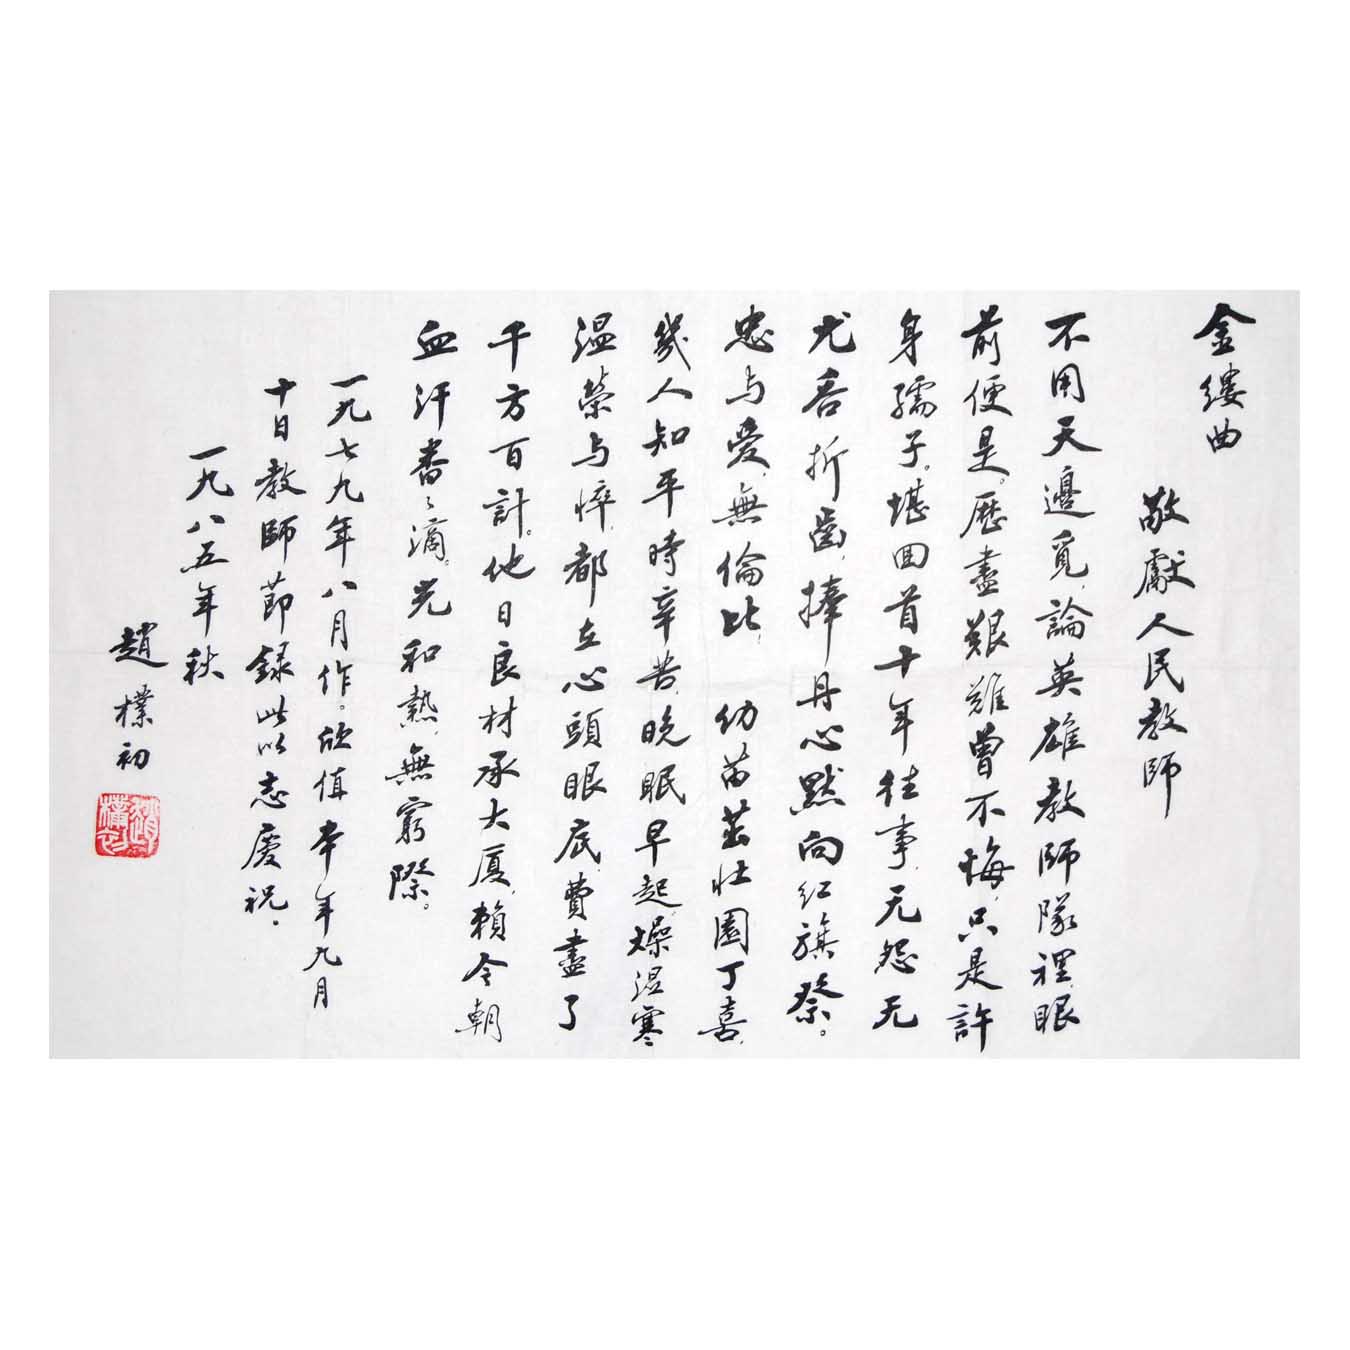 金縷曲
敬獻人民教師
不用天邊覓，論英雄教師隊裡，眼
前便是。歷盡艱難曾不悔，只是許
身孺子。堪回首十年往事，无怨无
尤吞折齒，捧丹心默向红旗祭。
忠与愛，無倫比， 幼苗茁壮園丁喜，
幾人知平時辛苦，晚眠早起，燥湿寒
温荣与悴，都在心頭眼底，費盡了
千方百計。他日良材承大厦，賴今朝
血汗番々滴。光和熱，無窮際。
一九七九年八月作。欣值本年九月
十日教師節録此以志慶祝。
一九八五年秋
趙樸初
趙樸初